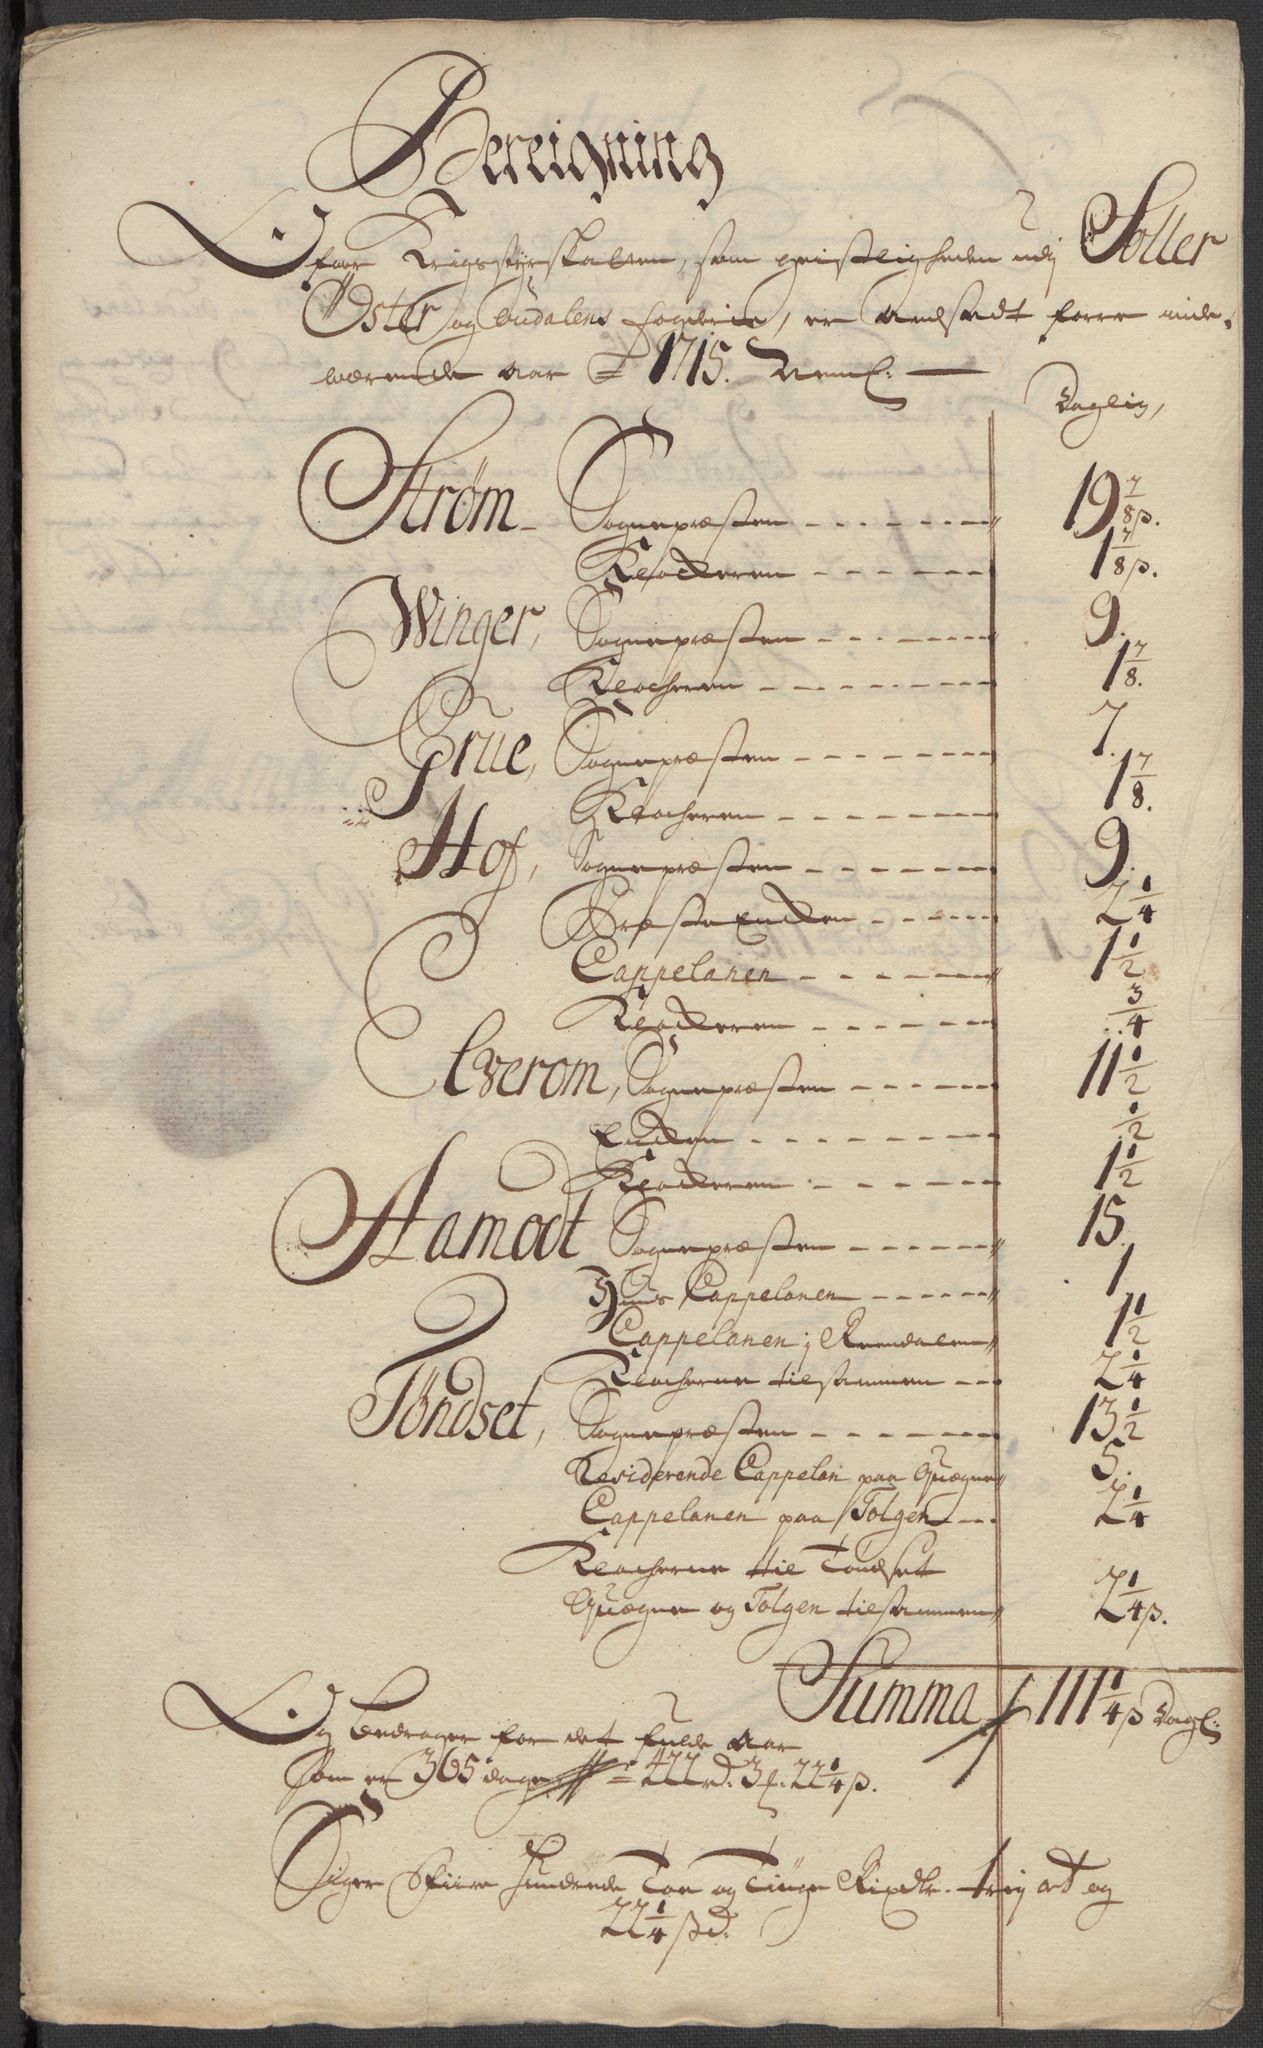 Bereigning
ofver Krigsstyrskatten, som geistligheden udj Soller
Øster og Oudalens fogderie, er Ansadt forre inde-
wærende Aar 1715. Neml:
Daglig,
Strøm - Sognepræsten 19 7/8 β.
Klockeren 1 7/8 β.
Winger, Sognepræsten 9.
Klocheren 1 7/8.
Grue, Sognepræsten 7.
Klocheren 1 7/8.
Hof, Sognepræsten 9.
Præste Encken 2 1/4
Cappelanen 1 1/2
Klockeren 3/4
Elverom, Sognepræsten 11 1/2
Encken 1/2
Klockeren 1 1/2
Aamodt Sognepræsten 15.
Hans Cappelanen 1
Cappelanen j Rendalen 1 1/2
Klocherne tilsammen 2 1/4
Töndset, Sognepræsten 13 1/2
Residerende Cappelan paa Quægne 5.
Cappelanen paa Tolgen 2 1/4
Klocherne til Tøndset
Quægne og Tolgen tilsammen 2 1/4 β.
Summa 111 1/4 β Dagl:
Og bedrager for det fulde Aar
som er 365 dage 422 rd. 3 ƒ. 22 1/4 β.
Siger Fiire Hundrede Toe og Tiuge Rixdlr. trij ort og
22 1/4 β d.